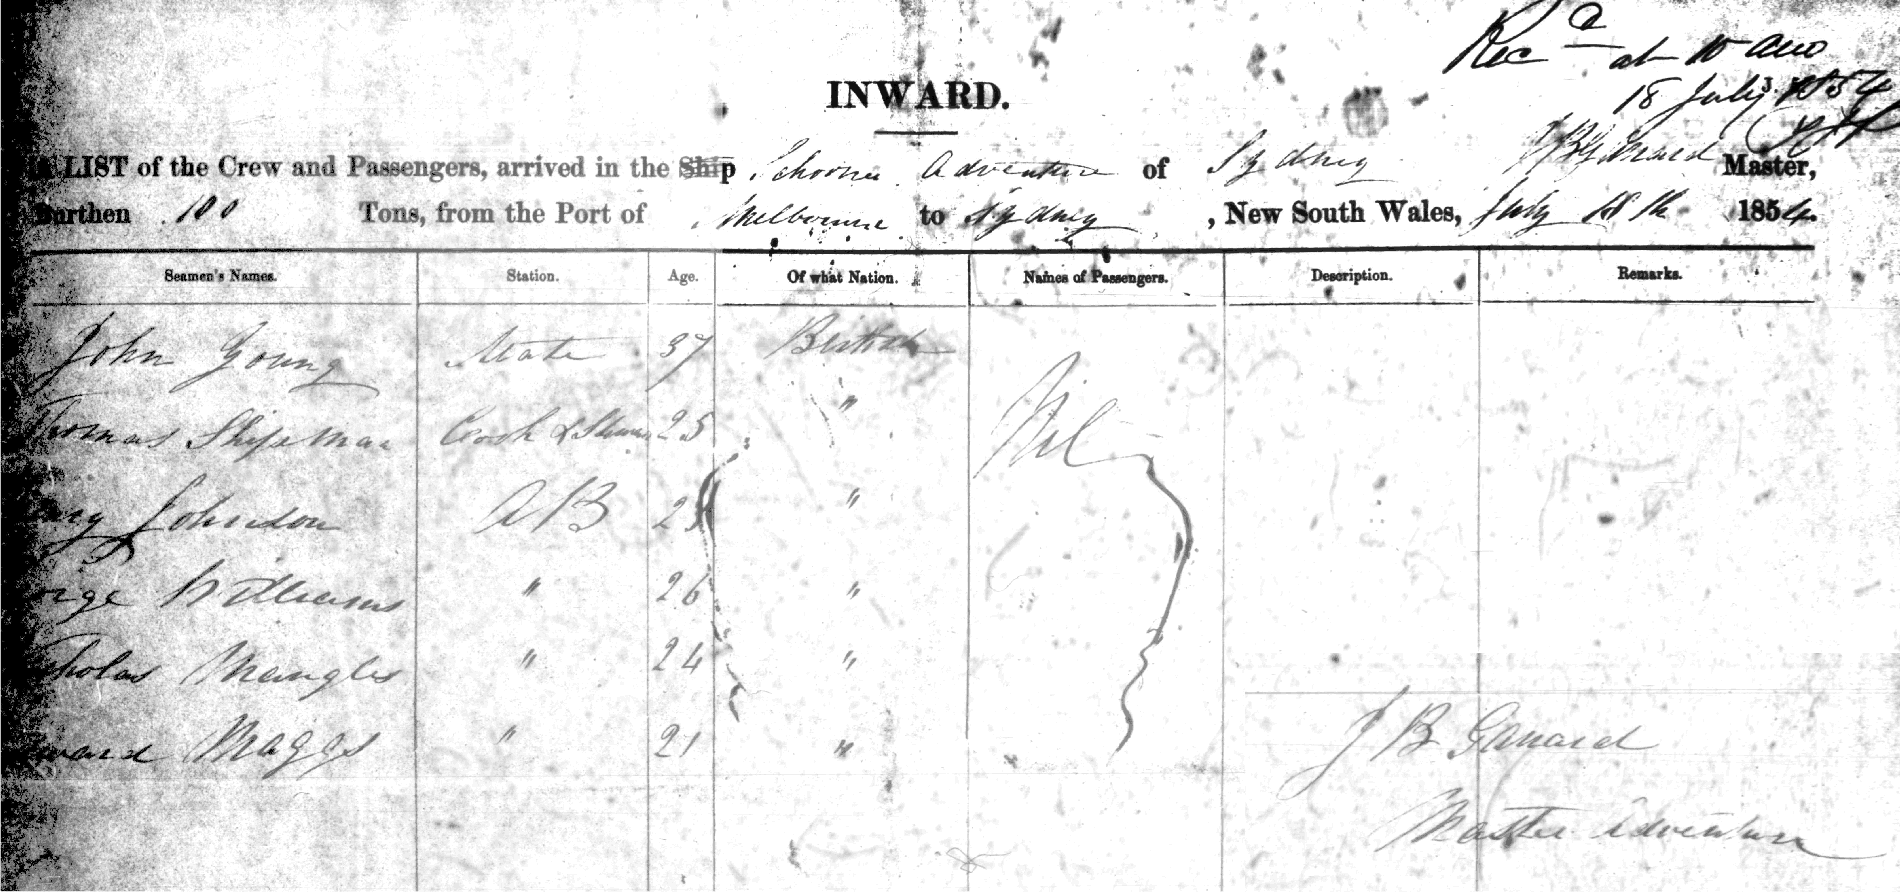 Rec^d at 10 am
18 July 1854
INWARD.
A LIST of the Crew and Passengers, arrived in the Ship Schooner Adventure of Sydney J B Master,
Burthen 100 Tons, from the Port of Melbourne to Sydney, New South Wales, July 18th 1854.
Seamen's Names. Station. Age. Of what Nation. Names of Passengers. Description. Remarks.
John Young Mate 37 British
Thomas Shipman Cook & Steward 25 "
Nil
Johnson AB 25 "
Williams " 26 "
Mangles " 24 "
Maggs " 21 "
J B
Master Adventure